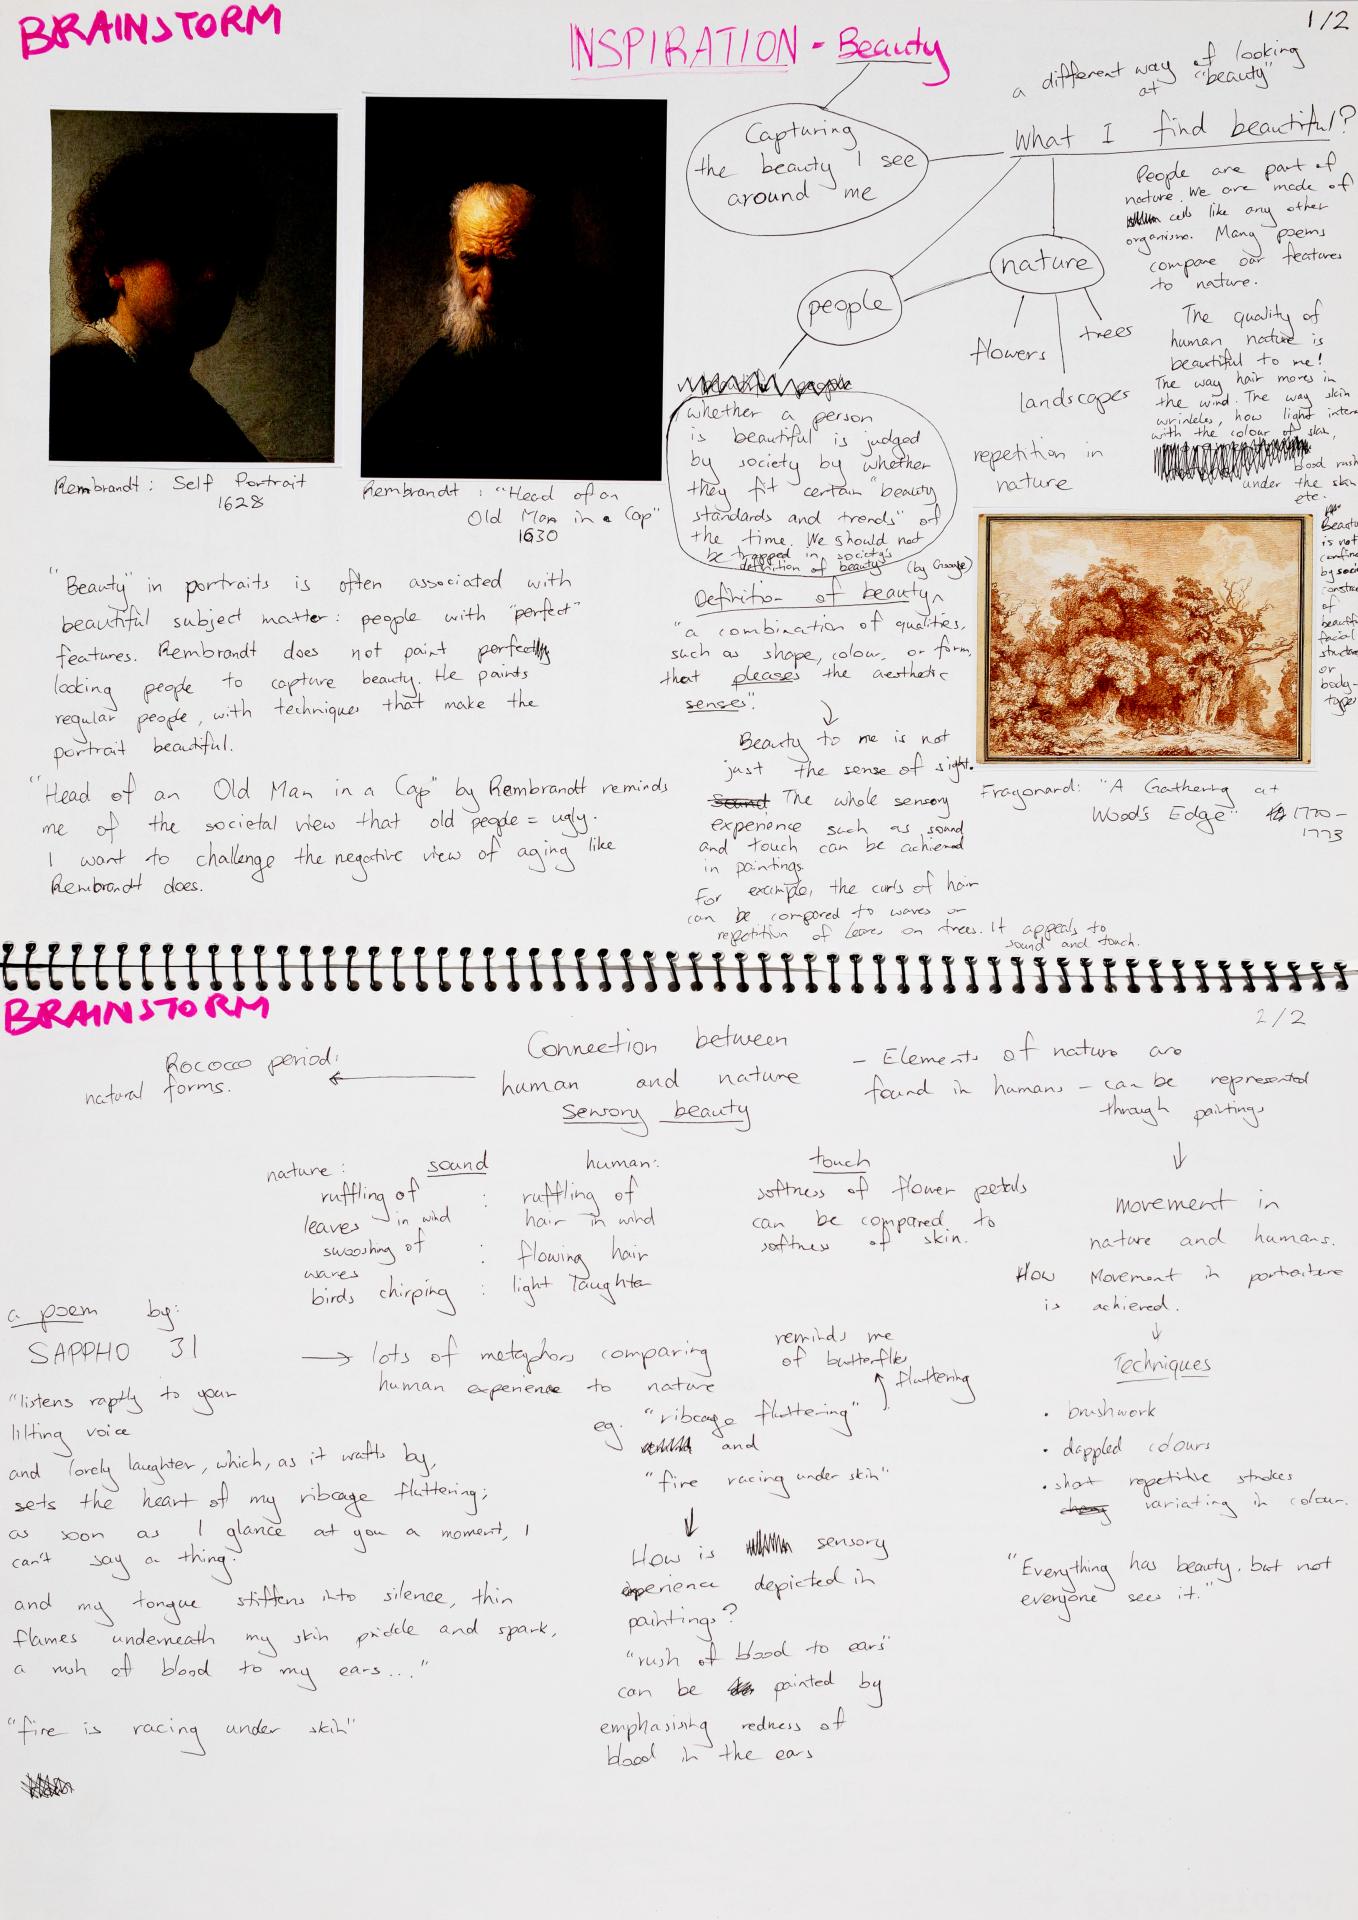 BRAINSTORM
INSPIRATION - Beauty
1/2
a different way of looking
at "beauty"
Capturing
the beauty I see
around me
What I find beautiful?
people
nature
flowers
trees
landscapes
repetition in
nature
People are part of
nature. We are made of
cells like any other
organisms. Many poems
compare our features
to nature.
The quality of
human nature is
beautiful to me!
The way hair moves in
the wind. The way skin
wrinkles, how light
with the colour of skin,
blood rush
under the skin
etc.
is not
by
of
facial
or
body-
types
Rembrandt: Self Portrait
1628
Rembrandt: "Head of an
Old Man in a Cap"
1630
whether a person
is beautiful is judged
by society by whether
they fit certain "beauty
standards and trends" of
the time. We should not
be trapped in society's
definition of beauty
(by Google)
Definition of beauty
"a combination of qualities,
such as shape, colour, or form,
that pleases the aesthetic
senses".
Beauty to me is not
just the sense of sight.
Sound The whole sensory
experience such as sound
and touch can be achieved
in paintings.
For example, the curls of hair
can be compared to waves or
repetition of leaves on trees. It appeals to
sound and touch.
Fragonard: "A Gathering at
Woods Edge" 1770-
1773
"Beauty" in portraits is often associated with
beautiful subject matter: people with "perfect"
features. Rembrandt does not paint perfectly
looking people to capture beauty. He paints
regular people, with techniques that make the
portrait beautiful.
"Head of an Old Man in a Cap" by Rembrandt reminds
me of the societal view that old people = ugly.
I want to challenge the negative view of aging like
Rembrandt does.
BRAINSTORM
2/2
Rococco period:
natural forms.
Connection between
human and nature
Sensory beauty
- Elements of nature are
found in humans - can be represented
through paintings
nature: sound human:
ruffling of : ruffling of
leaves in wind hair in wind
swooshing of : flowing hair
waves
birds chirping : light laughter
touch
softness of flower petals
can be compared to
softness of skin.
movement in
nature and humans.
How Movement in portraiture
is achieved.
Techniques
• brushwork
• dappled colours
• short repetitive strokes
variating in colour.
"Everything has beauty, but not
everyone sees it."
a poem by:
SAPPHO 31
lots of metaphors comparing
human experience to nature
reminds me
of butterflies
fluttering
eg. "ribcage fluttering"
and
"fire racing under skin"
How is sensory
experience depicted in
paintings?
"rush of blood to ears"
can be painted by
emphasising redness of
blood in the ears
"listens raptly to your
lilting voice
and lovely laughter, which, as it wafts by,
sets the heart of my ribcage fluttering;
as soon as I glance at you a moment, I
can't say a thing.
and my tongue stiffens into silence, thin
flames underneath my skin prickle and spark,
a rush of blood to my ears..."
"fire is racing under skin"